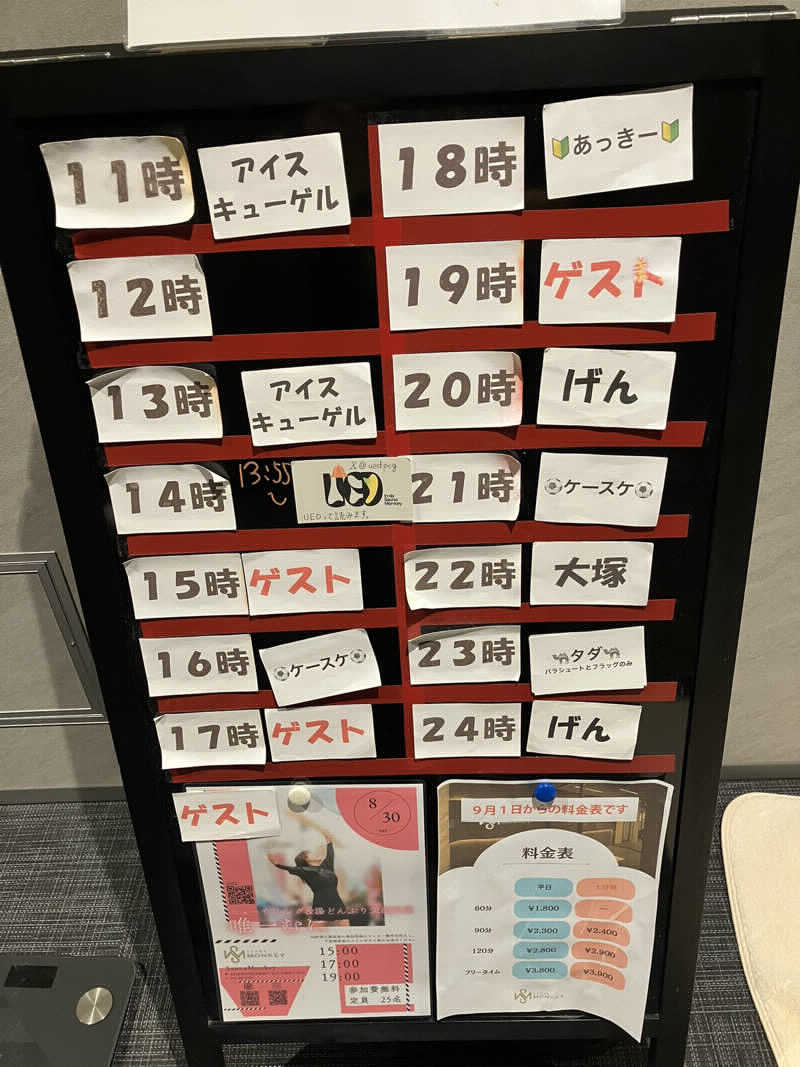 11時
アイス
キューゲル
12時
13時
アイス
キューゲル
14時
13:55
X@uedpcg
UEDって読みます。
15時
ゲスト
16時
ケースケ
17時
ゲスト
18時
あっきー
19時
ゲスト
20時
げん
21時
ケースケ
22時
大塚
23時
タダ
パラシュートとフラッグのみ
24時
げん
ゲスト
8/30
MONKEY
15:00
17:00
19:00
参加費無料
定員 25名
9月1日からの料金表です
料金表
平日
60分 ¥1,800 ―
90分 ¥2,300 ¥2,400
120分 ¥2,800 ¥2,900
フリータイム ¥3,800 ¥3,900
MONKEY